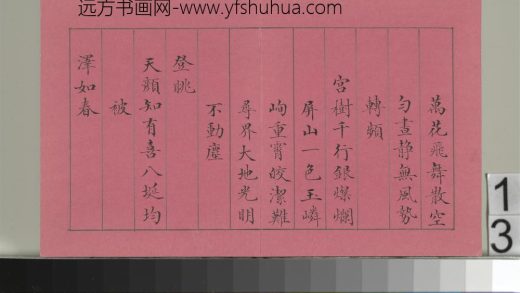 远方书画网-www.yfshuhua.com
萬花飛舞散空
勻晝靜無風勢
轉頻
宮樹千行銀燦爛
屏山一色玉嶙
峋重霄皎潔難
尋界大地光明
不動塵
登眺
天顏知有喜八埏均
被
澤如春
1
3